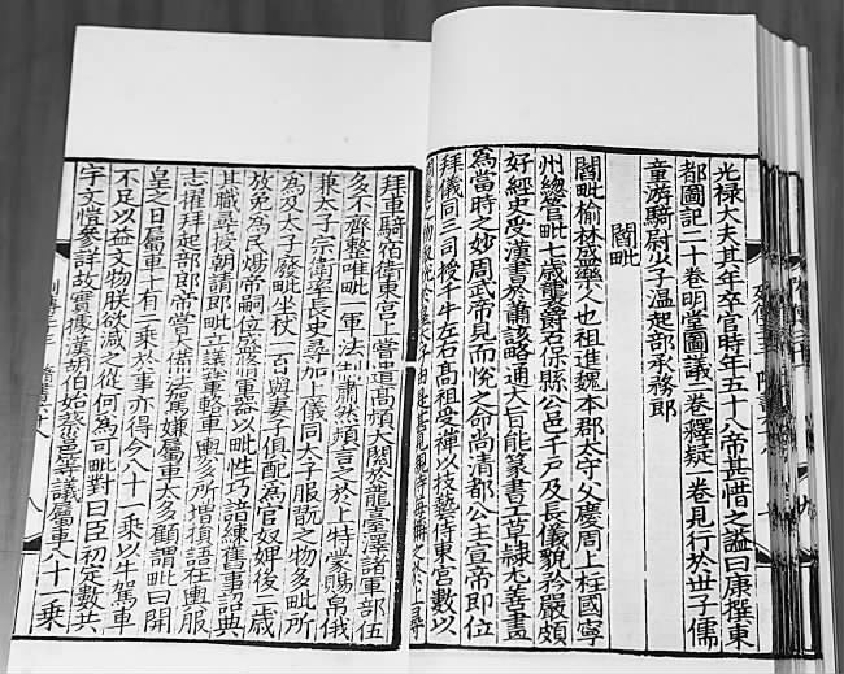 光祿大夫其年卒官時年五十八帝甚惜之謚曰康撰東
都圖記二十卷明堂圖議二卷釋疑一卷見行於世子儒
童游騎尉少子溫起部承務郎
閻毗
閻毗榆林盛樂人也祖進魏本郡太守父慶周上柱國寧
州總管毗七歲襲爵石保縣公邑千戶及長儀貌矜嚴頗
好經史受漢書於蕭該略通大旨能篆書工草隸尤善畫
為當時之妙周武帝見而悅之命尚清都公主宣帝即位
拜儀同三司授千牛左右高祖受禪以技藝侍東宮數以
之物取悅於皇太子由是甚見親待每稱之於上尋
拜車騎宿衛東宮上嘗遣高熲大閱於龍臺澤諸軍部伍
多不齊整唯毗一軍法制肅然熲言之於上特蒙賜帛俄
兼太子宗衛率長史尋加上儀同太子服翫之物多毗所
為及太子廢毗坐杖一百與妻子俱配為官奴婢後二歲
放免為民煬帝嗣位盛脩軍器以毗性巧諳練舊事詔典
其職尋授朝請郎毗立議輦輅車輿多所增損語在輿服
志擢拜起部郎帝嘗大備法駕嫌屬車太多顧謂毗曰開
皇之日屬車十有二乘於事亦得今八十一乘以牛駕車
不足以益文物朕欲減之從何為可毗對曰臣初定數共
宇文愷參詳故實據漢胡伯始蔡邕等議屬車八十一乘